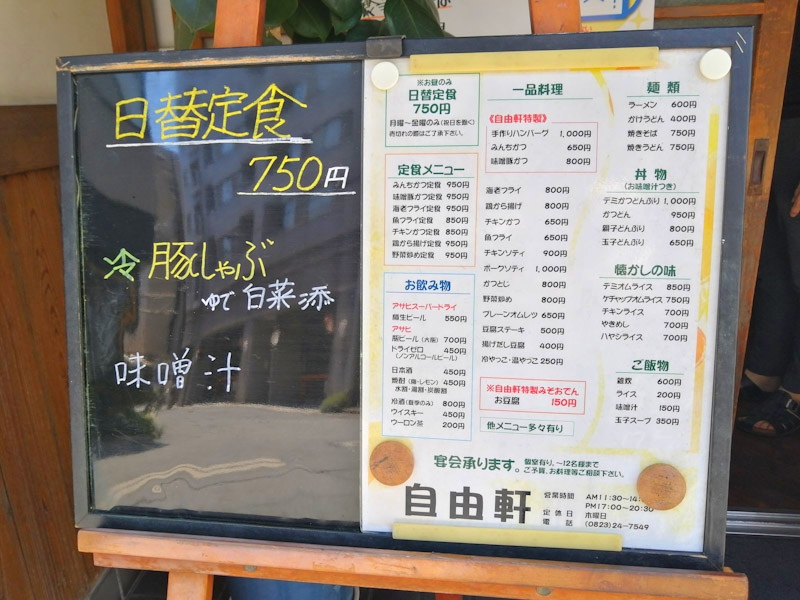 日替定食
750円
冷 豚しゃぶ
ゆで白菜添
味噌汁
※お昼のみ
日替定食
750円
月曜〜金曜のみ(祝日を除く)
売切れの際はご了承下さい。
定食メニュー
みんちかつ定食 950円
味噌豚かつ定食 950円
海老フライ定食 950円
魚フライ定食 850円
チキンカツ定食 850円
鶏から揚げ定食 950円
野菜炒め定食 950円
お飲み物
アサヒスーパードライ
樽生ビール 550円
アサヒ
瓶ビール(大瓶) 700円
ドライゼロ 450円
(ノンアルコールビール)
日本酒 450円
焼酎(麹・レモン) 450円
水割・湯割・炭酸割
冷酒(夏季のみ) 800円
ウイスキー 450円
ウーロン茶 200円
一品料理
《自由軒特製》
手作りハンバーグ 1,000円
みんちかつ 650円
味噌豚かつ 800円
海老フライ 800円
鶏から揚げ 800円
チキンかつ 650円
魚フライ 650円
チキンソティ 900円
ポークソティ 1,000円
かつとじ 800円
野菜炒め 800円
プレーンオムレツ 650円
豆腐ステーキ 500円
揚げだし豆腐 400円
冷やっこ・温やっこ 250円
※自由軒特製みそおでん
お豆腐 150円
他メニュー多々有り
麺類
ラーメン 600円
かけうどん 400円
焼きそば 750円
焼きうどん 750円
丼物
(お味噌汁つき)
デミかつどんぶり 1,000円
かつどん 950円
親子どんぶり 800円
玉子どんぶり 650円
懐かしの味
デミオムライス 850円
ケチャップオムライス 750円
チキンライス 700円
やきめし 700円
ハヤシライス 700円
ご飯物
雑炊 600円
ライス 200円
味噌汁 150円
玉子スープ 350円
宴会承ります。
個室有り、〜12名様まで
ご予算、お料理等ご相談下さい。
自由軒
営業時間 AM11:30〜14:
PM17:00〜20:30
定休日 木曜日
電話 (0823)24-7549